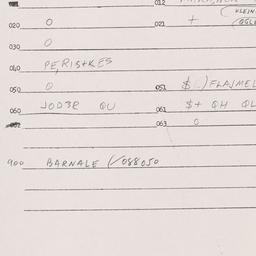 012
(KLEIN
020 0 021 + (GSLE
030 0
040 PERISTKES
050 0 051 $..)FLAJMEL
060 JOD3R QU 061 $+ QH QL
063 0
900 BARNALE (/088050